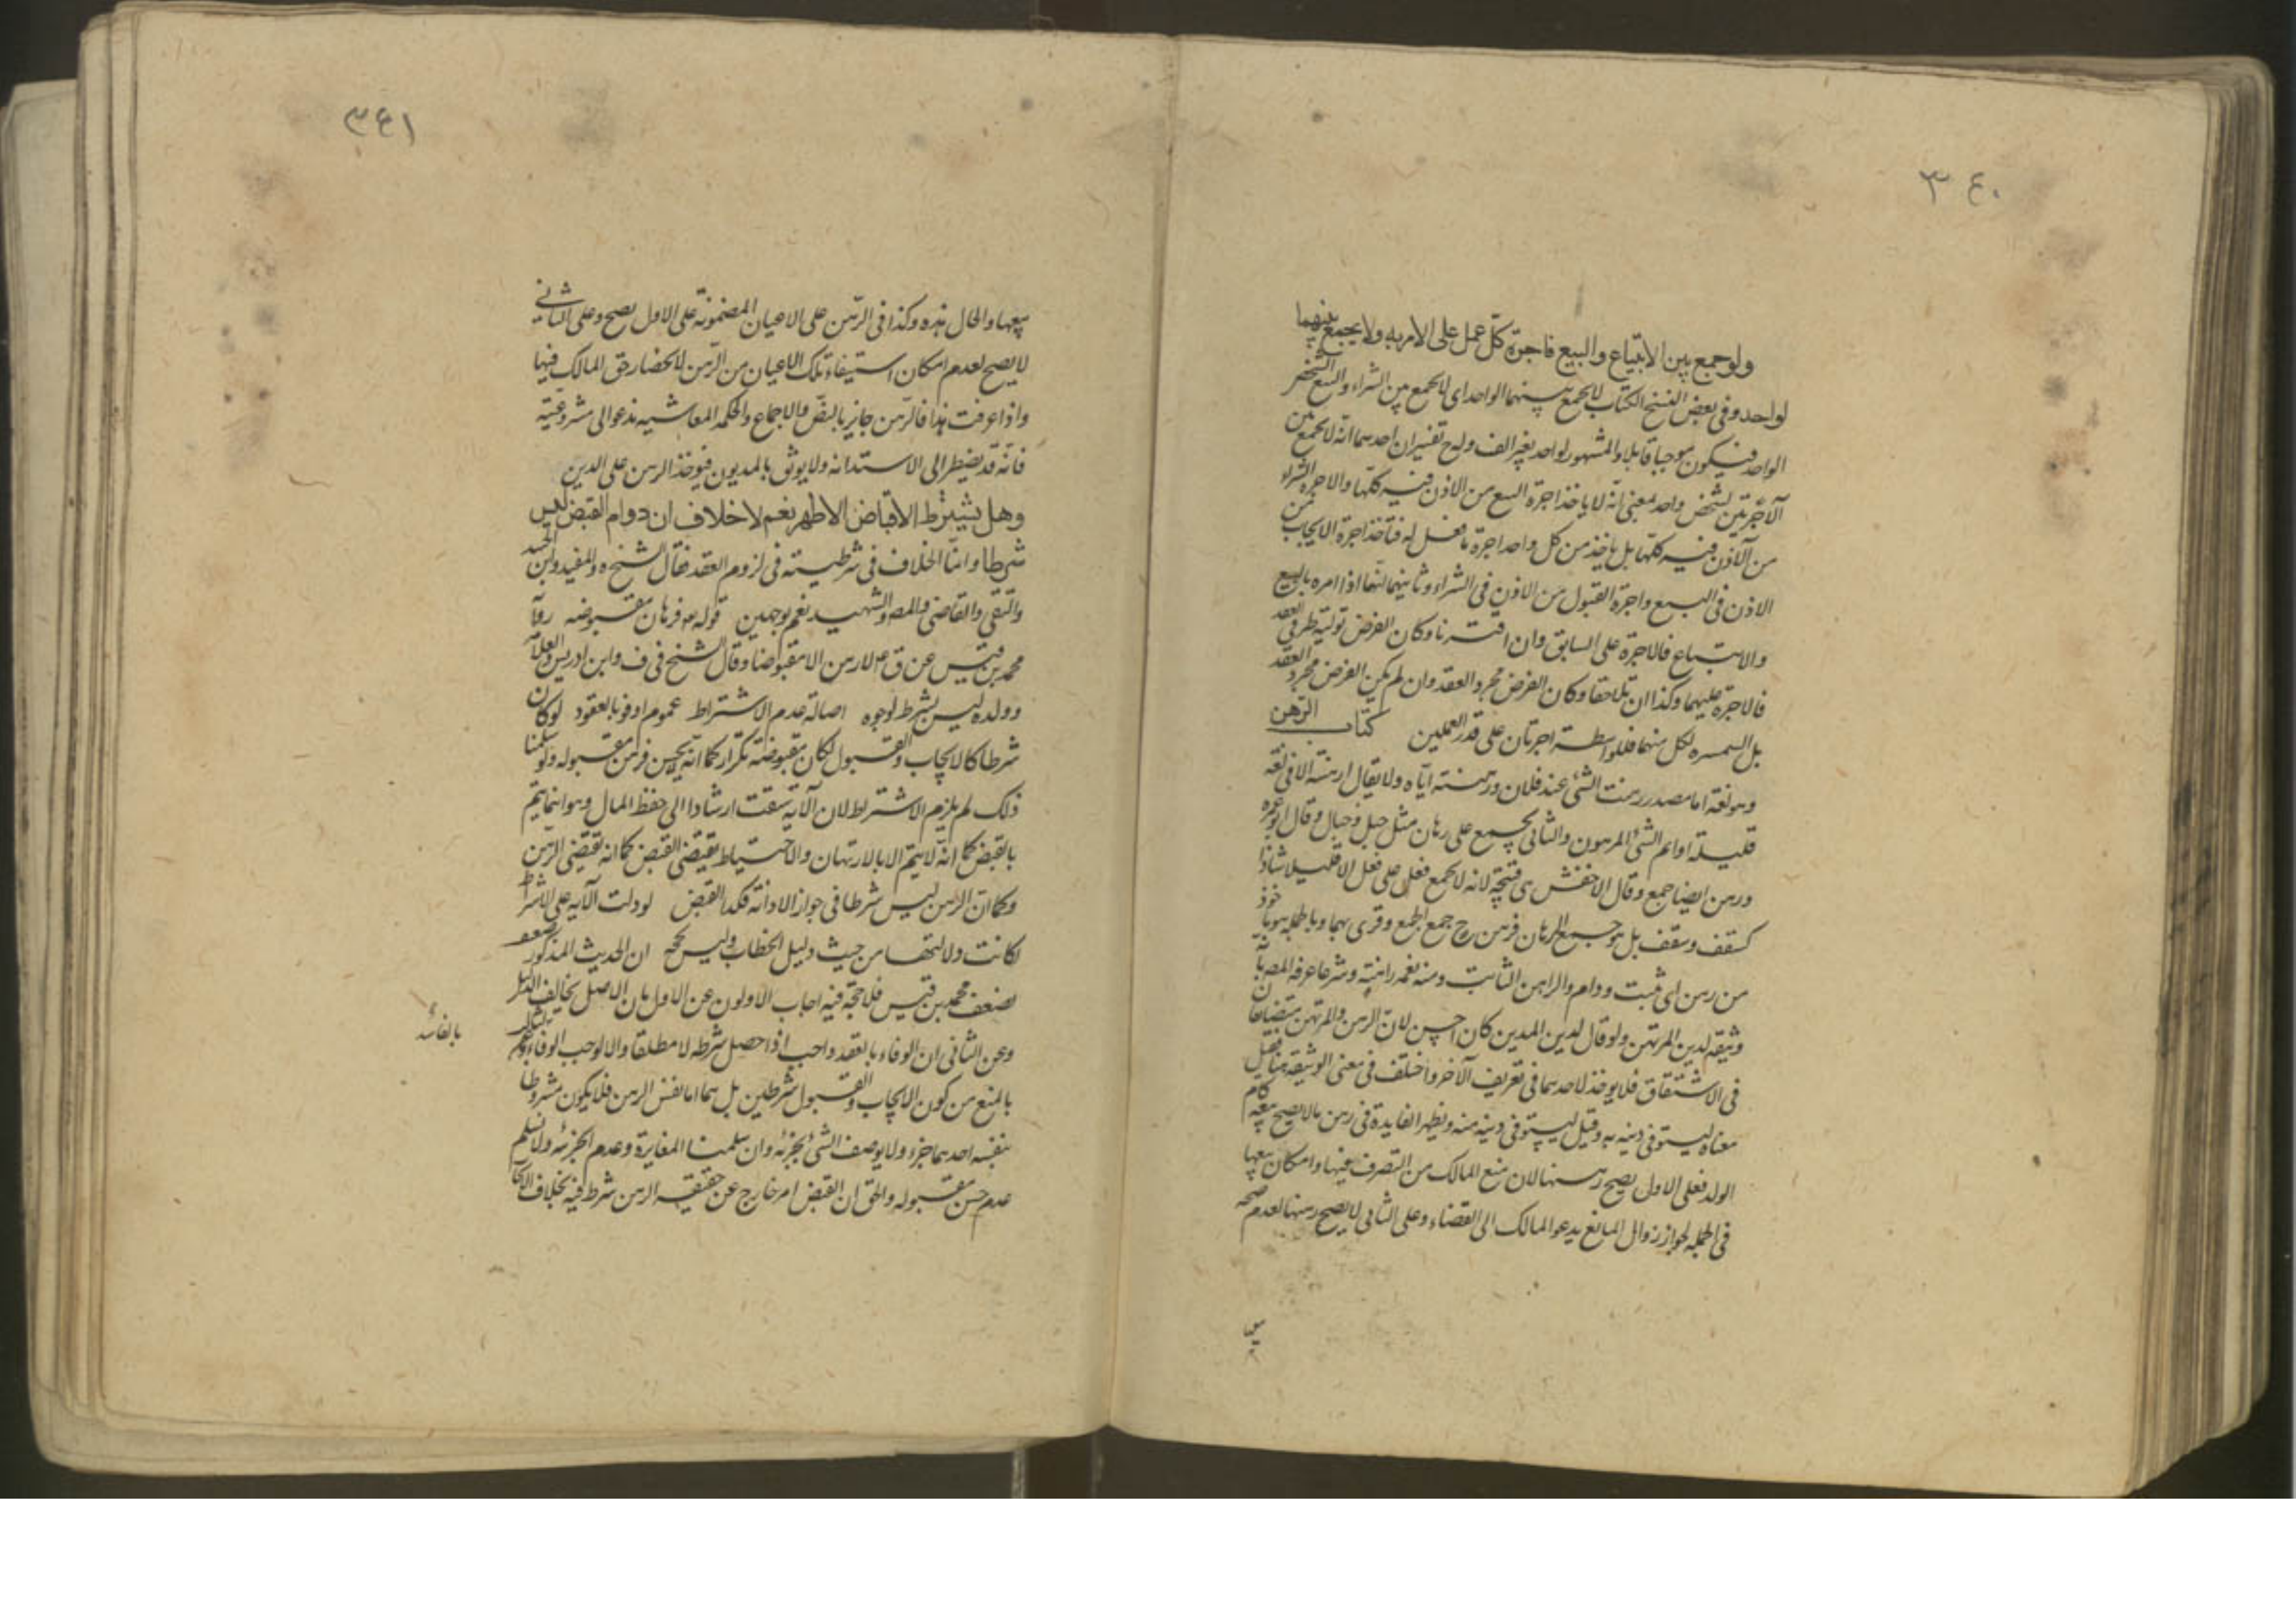 ٣٤٠
ولو جمع بين الابتياع والبيع فاجرة كل عمل على الامر به ولا يجمع بينهما
لواحد وفى بعض النسخ الكتاب لا يجمع بينهما الواحد اى لا يجمع بين الشراء والبيع الشخص
الواحد فيكون موجبا قابلا والمشهور لواحد بغير الف وله ح تفسيران احدهما انه لا يجمع بين
الاجرتين لشخص واحد بمعنى انه لا ياخذ اجرة البيع من الاذن فيه كلها والاجرة الشراء
من الاذن فيه كلها بل ياخذ من كل واحد اجرة ما فعل له فتاخذ اجرة الايجاب من
الاذن فى البيع واجرة القبول من الاذن فى الشراء وثانيهما انها اذا امره بالبيع
والابتياع فالاجرة على السابق وان اقترنا وكان الغرض تولية طرفى العقد
فالاجرة عليهما وكذا ان تلاحقا وكان الغرض مجرد العقد وان لم يكن الغرض مجرد العقد
بل السمسره لكل منهما فللواسطة اجرتان على قدر العملين كتاب الرهن
وهو لغة اما مصدر رهنت الشئ عند فلان ورهنته اياه ولا يقال ارهنته الا فى لغة
قليلة او اسم الشئ المرهون والثانى يجمع على رهان مثل حبل وحبال وقال ابو عمرو
ورهن ايضا جمع وقال الاخفش هى قبيحة لانه لا يجمع فعل على فعل الا قليلا شاذا
كسقف وسقف بل هو جمع الرهان فرهن ح جمع الجمع وقرى بهما وبالجملة هو ماخوذ
من رهن اى ثبت ودام والراهن الثابت ومنه نعمه راهنة وشرعا عرفه المصه بانه
وثيقة لدين المرتهن ولو قال لدين المدين كان احسن لان الرهن والمرتهن متضايفان
فى الاشتقاق فلا يوخذ لاحدهما فى تعريف الآخر واختلف فى معنى الوثيقة هنا قيل
معناه ليستوفى دينه به وقيل ليستوفى دينه منه ويظهر الفايدة فى رهن مالا يصح بيعه كام
الولد فعلى الاول يصح رهنها لان منع المالك من التصرف فيها وامكان بيعها
فى الجملة لجواز زوال المانع يدعو المالك الى القضاء وعلى الثانى لا يصح رهنها لعدم صحة
بيعها
٣٤١
بيعها والحال هذه وكذا فى الرهن على الاعيان المضمونة على الاول يصح وعلى الثانى
لا يصح لعدم امكان استيفاء تلك الاعيان من الرهن لانحصار حق المالك فيها
واذا عرفت هذا فالرهن جايز بالنص والاجماع والحكمه المعاشيه تدعو الى مشروعيته
فانه قد يضطر الى الاستدانه ولا يوثق بالمديون فيوخذ الرهن على الدين
وهل يشترط الاقباض الاظهر نعم لا خلاف ان دوام القبض ليس
شرطا وانما الخلاف فى شرطيته فى لزوم العقد فقال الشيخ ره والمفيد وابن الجنيد
والتقى والقاضى والمصه والشهيد نعم بوجهين قوله تع فرهان مقبوضه روآ
محمد بن قيس عن ق ع لا رهن الا مقبوضا وقال الشيخ فى ف وابن ادريس والعلامة
وولده ليس بشرط لوجوه اصالة عدم الاشتراط عموم اوفوا بالعقود لو كان
شرطا كالايجاب والقبول لكان مقبوضة تكرار كما انه لا يحسن فرهن مقبوله ولو سلمنا
ذلك لم يلزم الاشتراط لان الآية سيقت ارشادا الى حفظ المال وهو انما يتم
بالقبض كما انه لا يتم الا بالارتهان والاحتياط يقتضى القبض كما انه يقتضى الرهن
وكما ان الرهن ليس شرطا فى جواز الادانة فكذا القبض لو دلت الآية على الاشتراط
لكانت دلالتها من حيث دليل الخطاب وليس بحجة ان الحديث المذكور ضعف
لضعف محمد بن قيس فلا حجة فيه اجاب الاولون عن الاول بان الاصل يخالف الدليل
وعن الثانى ان الوفاء بالعقد واجب اذا حصل شرطه لا مطلقا والا لوجب الوفاء
بالمنع من كون الايجاب والقبول شرطين بل هما اما نفس الرهن فلا يكون مشروطا
بنفسه احدهما جزء ولا يوصف الشئ بجزئه وان سلمنا المغايرة وعدم الجزئه ولا نسلم
عدم حسن مقبوله والحق ان القبض امر خارج عن حقيقة الرهن شرط فيه بخلاف